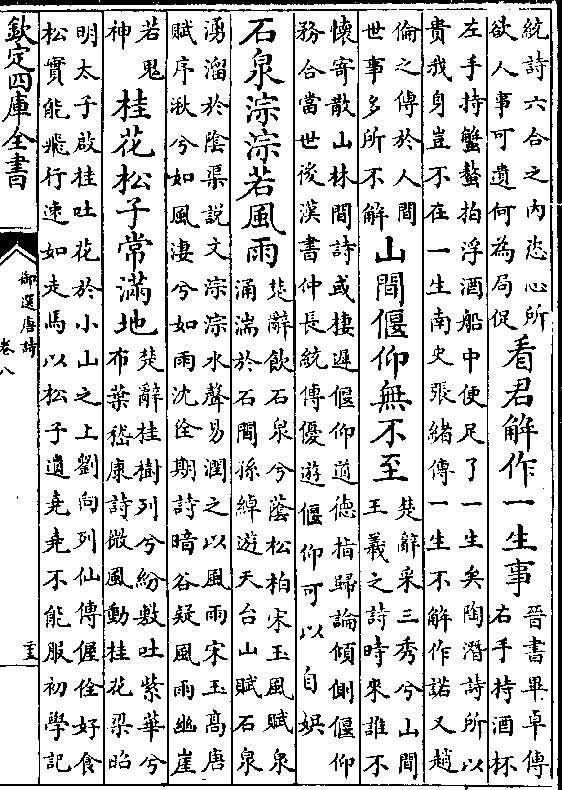 統詩六合之内恣心所
欲人事可遺何為局促
看君解作一生事
晉書畢卓傳
右手持酒杯
左手持蟹螯拍浮酒船中便足了一生矣陶潛詩所以
貴我身豈不在一生南史張緒傳一生不解作諾又趙
倫之傳於人間
世事多所不解
山間偃仰無不至
楚辭采三秀兮山間
王羲之詩時來誰不
懷寄散山林間詩或棲遲偃仰道德指歸論傾側偃仰
務合當世後漢書仲長統傳優遊偃仰可以自娯
石泉淙淙若風雨
楚辭飲石泉兮蔭松柏宋玉風賦泉
涌湍於石間孫綽遊天台山賦石泉
湧溜於陰渠説文淙淙水聲易潤之以風雨宋玉髙唐
賦序湫兮如風淒兮如雨沈佺期詩暗谷疑風雨幽崖
若鬼
神
桂花松子常滿地
楚辭桂樹列兮紛敷吐紫華兮
布葉嵇康詩微風動桂花梁昭
明太子啟桂吐花於小山之上劉向列仙傳偓佺好食
松實能飛行速如走馬以松子遺堯堯不能服初學記
欽定四庫全書
御選唐詩
卷八